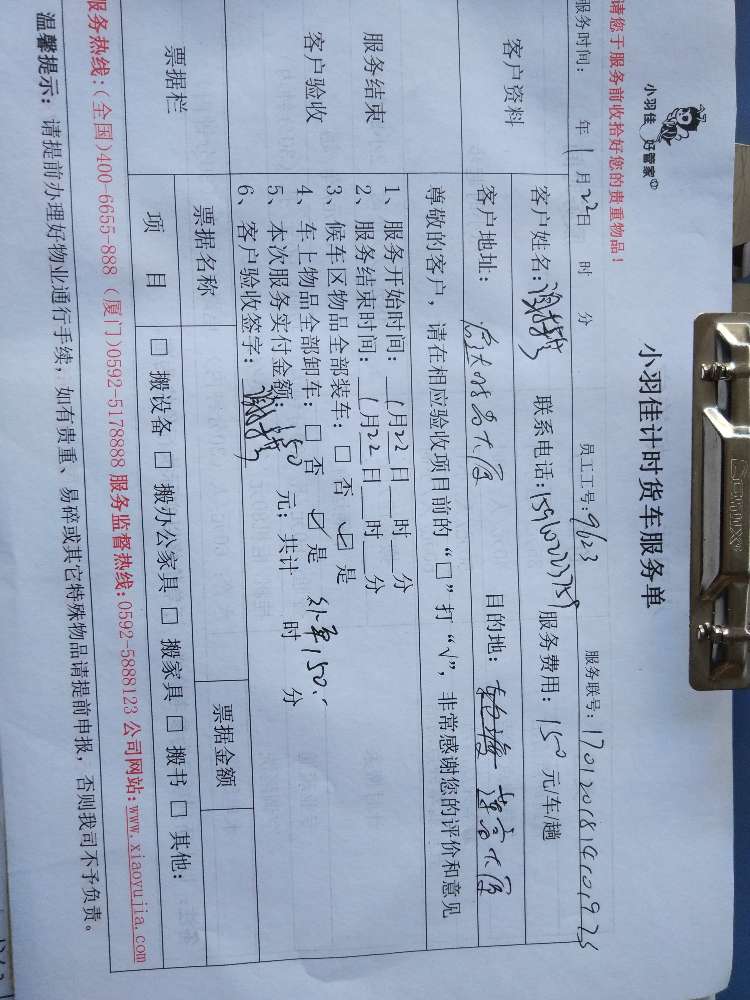 小羽佳 好管家
小羽佳计时货车服务单
请您于服务前收拾好您的贵重物品！
服务时间： 年 1 月 22 日 时 分 员工工号：9623 服务联号：1701201814101975
客户资料
客户姓名： 联系电话：15960223759 服务费用：150 元/车/趟
客户地址： 大厦 目的地： 大厦
服务结束
客户验收
尊敬的客户，请在相应验收项目前的“□”打“√”，非常感谢您的评价和意见
1、服务开始时间：1月22日__时__分
2、服务结束时间：1月22日__时__分
3、候车区物品全部装车：□ 否 ☑ 是
4、车上物品全部卸车：□ 否 ☑ 是
5、本次服务实付金额：150 元；共计 时 分
150.
6、客户验收签字：
票据栏
票据名称 票据金额
项 目 □ 搬设备 □ 搬办公家具 □ 搬家具 □ 搬书 □ 其他：
服务热线：(全国)400-6655-888 (厦门)0592-5178888 服务监督热线:0592-5888123 公司网站:www.xiaoyujia.com
温馨提示： 请提前办理好物业通行手续，如有贵重、易碎或其它特殊物品请提前申报，否则我司不予负责。